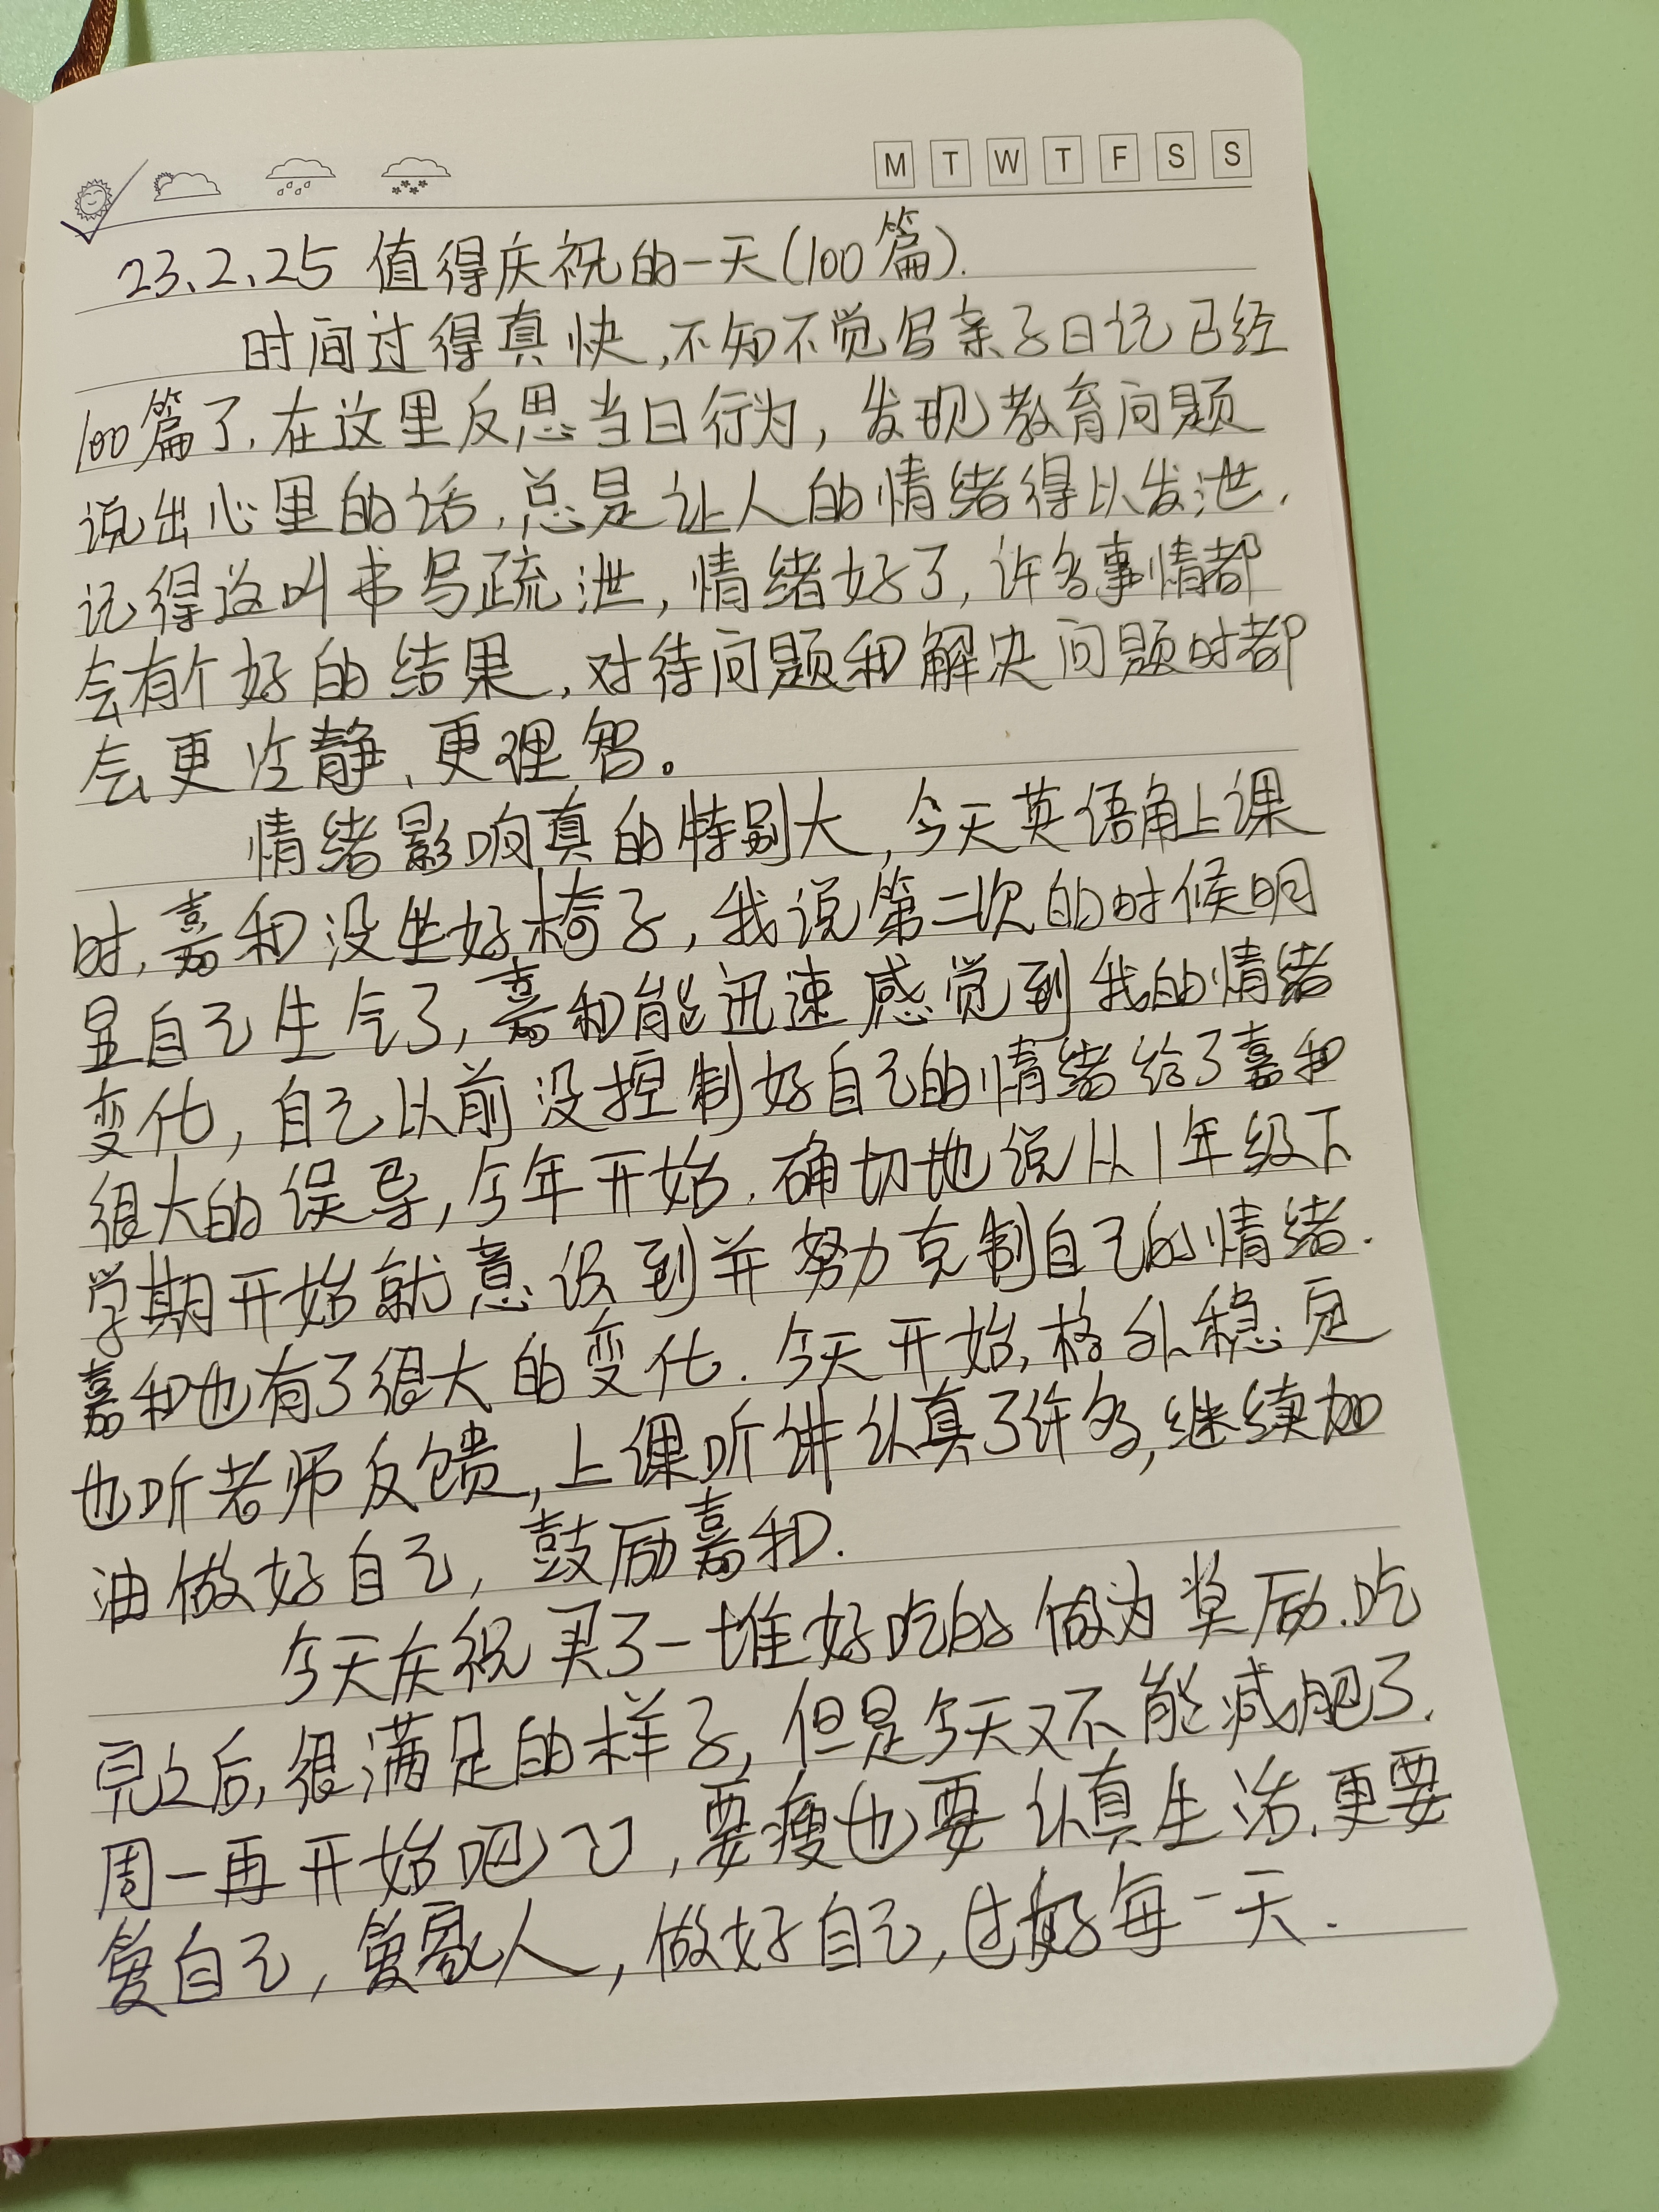 M T W T F S S
23.2.25 值得庆祝的一天(100篇).
时间过得真快,不知不觉写亲子日记已经
100篇了.在这里反思当日行为,发现教育问题
说出心里的话,总是让人的情绪得以发泄.
记得这叫书写疏泄,情绪好了,许多事情都
会有个好的结果,对待问题和解决问题时都
会更冷静、更理智。
情绪影响真的特别大,今天英语角上课
时,嘉和没坐好椅子,我说第二次的时候明
显自己生气了,嘉和能迅速感觉到我的情绪
变化,自己以前没控制好自己的情绪给了嘉和
很大的误导,今年开始.确切地说从1年级下
学期开始就意识到并努力克制自己的情绪.
嘉和也有了很大的变化.今天开始,格外稳定
也听老师反馈,上课听讲认真了许多,继续加
油做好自己,鼓励嘉和.
今天庆祝买了一堆好吃的做为奖励.吃
完之后,很满足的样子,但是今天又不能减肥了.
周一再开始吧,要瘦也要认真生活.更要
爱自己,爱家人,做好自己,过好每一天.